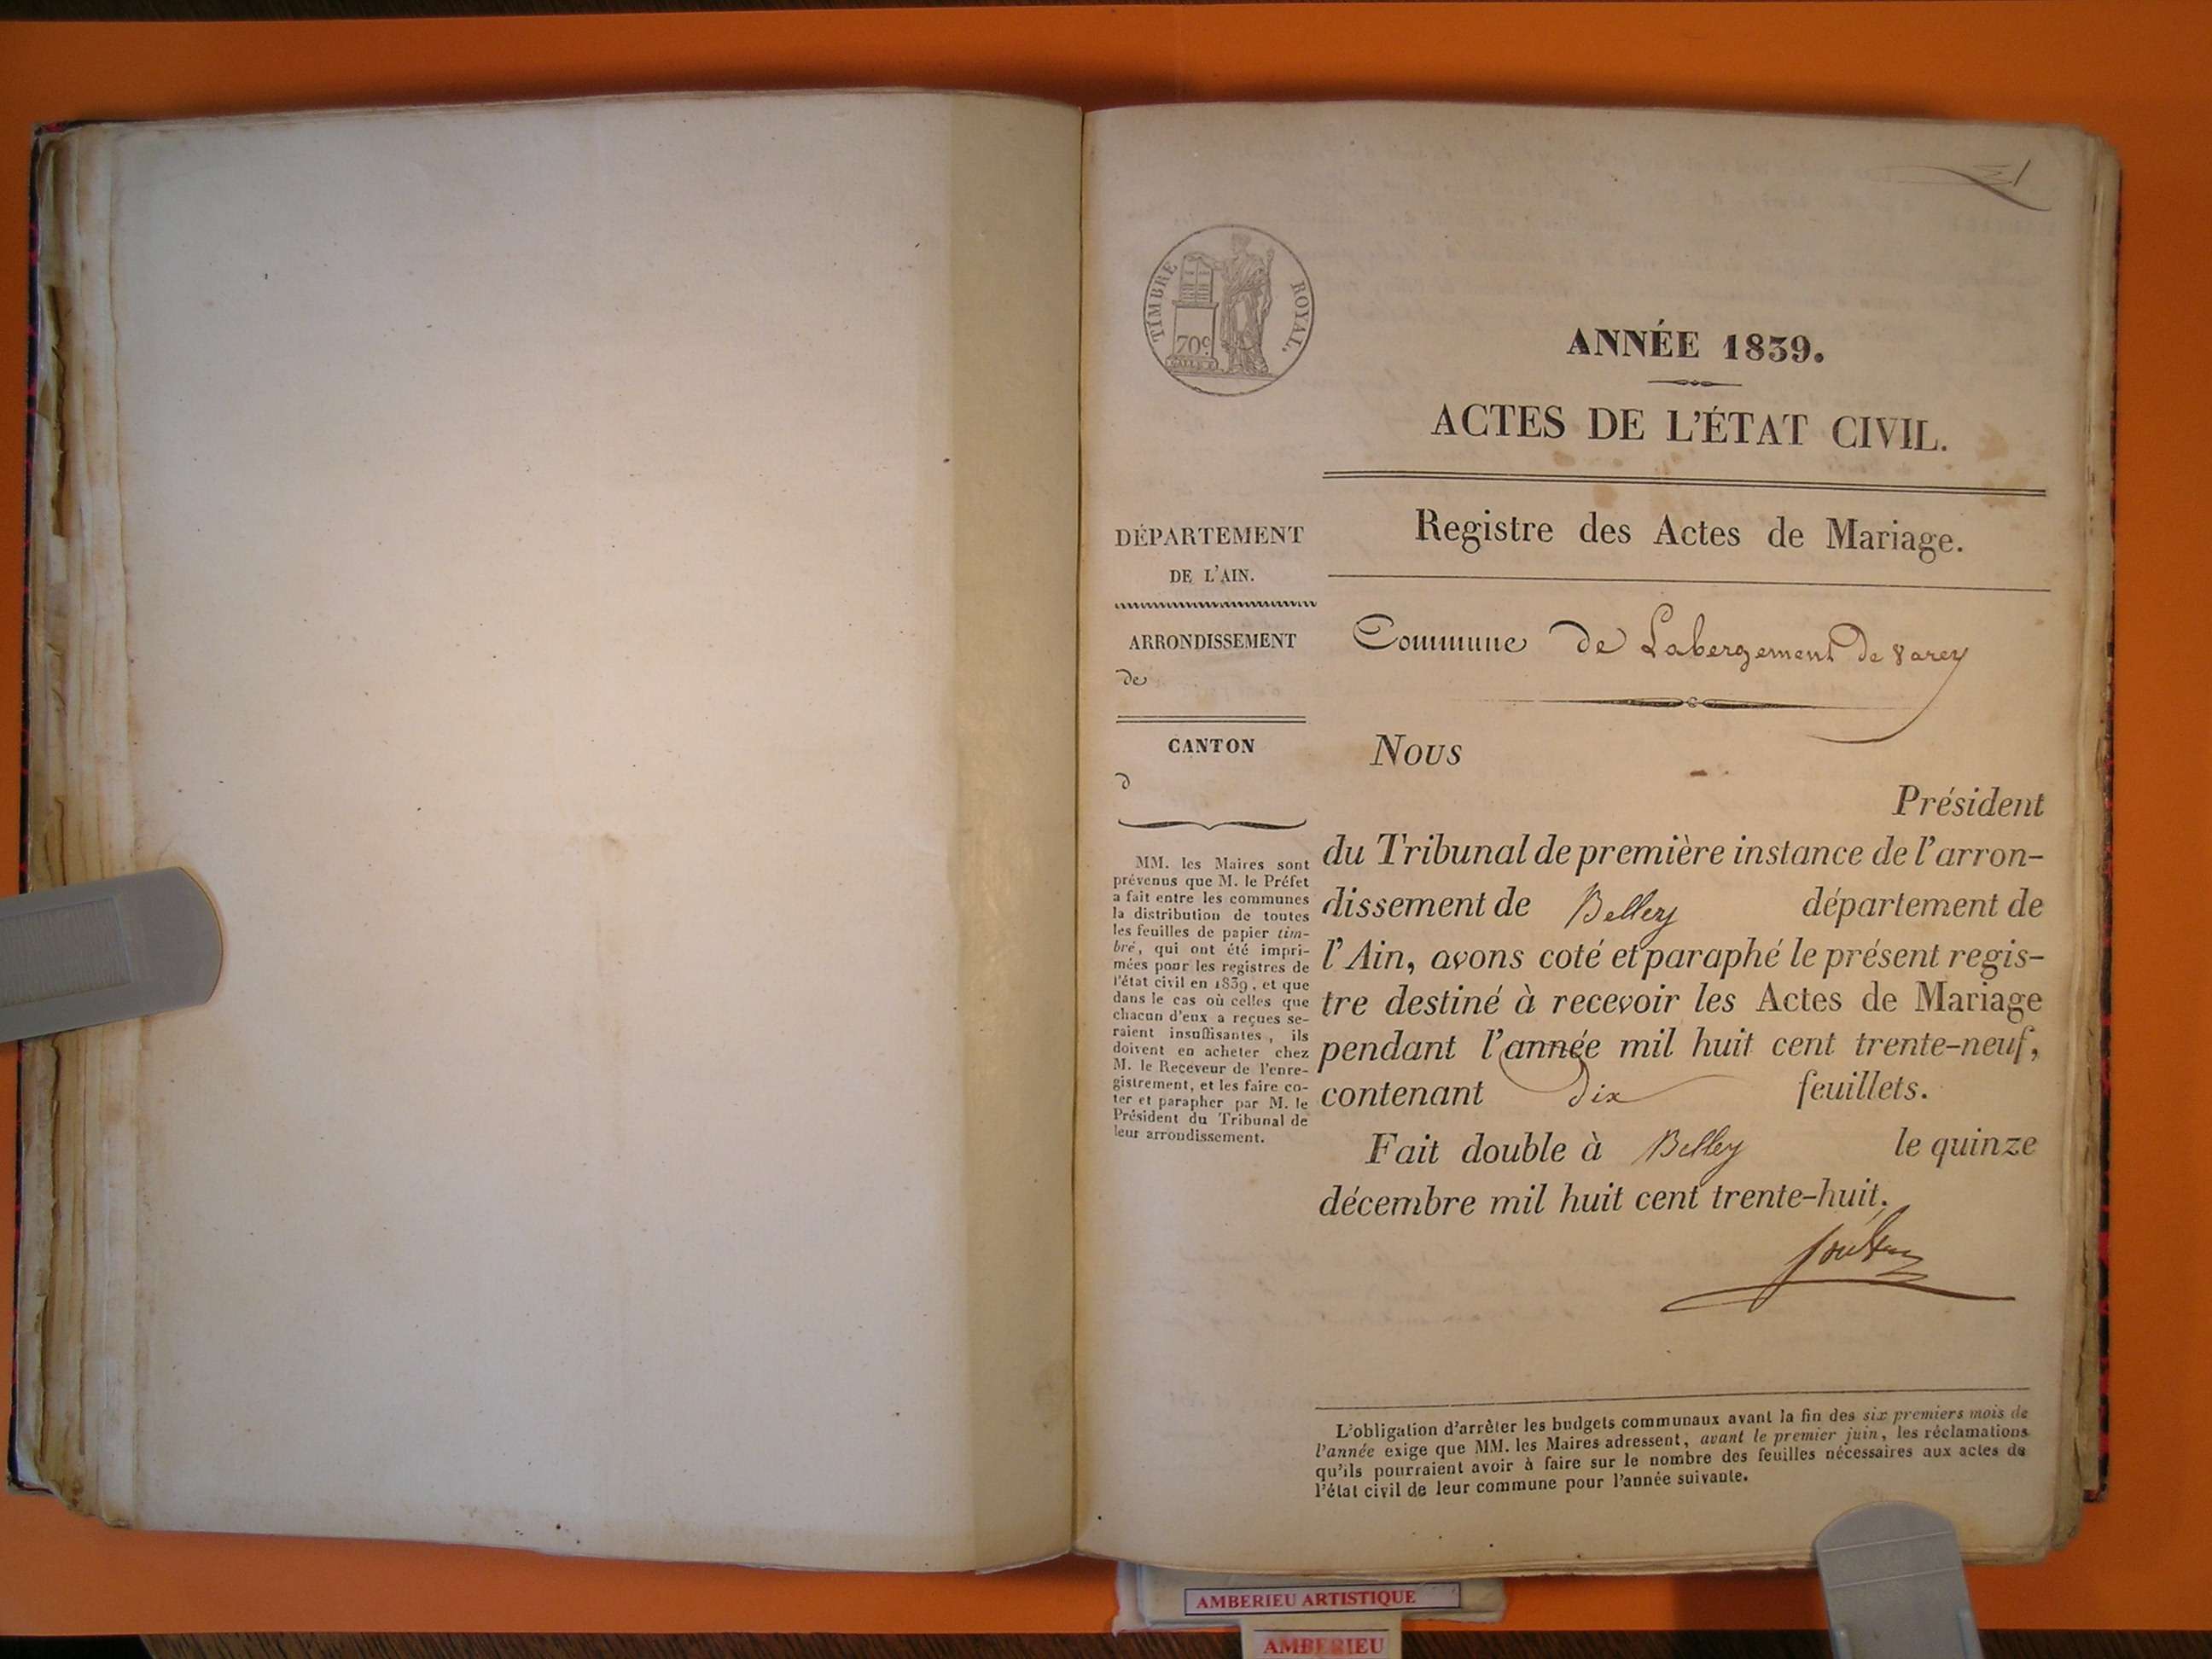 1
TIMBRE ROYAL.
70c
ANNÉE 1839.
ACTES DE L'ÉTAT CIVIL.
Registre des Actes de Mariage.
Commune de Labergement de Varey
DÉPARTEMENT
DE L'AIN.
ARRONDISSEMENT
de
CANTON
d
MM. les Maires sont
prévenus que M. le Préfet
a fait entre les communes
la distribution de toutes
les feuilles de papier tim-
bré, qui ont été impri-
mées pour les registres de
l'état civil en 1839, et que
dans le cas où celles que
chacun d'eux a reçues se-
raient insuffisantes, ils
doivent en acheter chez
M. le Receveur de l'enre-
gistrement, et les faire co-
ter et parapher par M. le
Président du Tribunal de
leur arrondissement.
Nous
Président
du Tribunal de première instance de l'arron-
dissement de Belley département de
l'Ain, avons coté et paraphé le présent regis-
tre destiné à recevoir les Actes de Mariage
pendant l'année mil huit cent trente-neuf,
contenant dix feuillets.
Fait double à Belley le quinze
décembre mil huit cent trente-huit.
L'obligation d'arrêter les budgets communaux avant la fin des six premiers mois de
l'année exige que MM. les Maires adressent, avant le premier juin, les réclamations
qu'ils pourraient avoir à faire sur le nombre des feuilles nécessaires aux actes de
l'état civil de leur commune pour l'année suivante.
AMBERIEU ARTISTIQUE
AMBERIEU